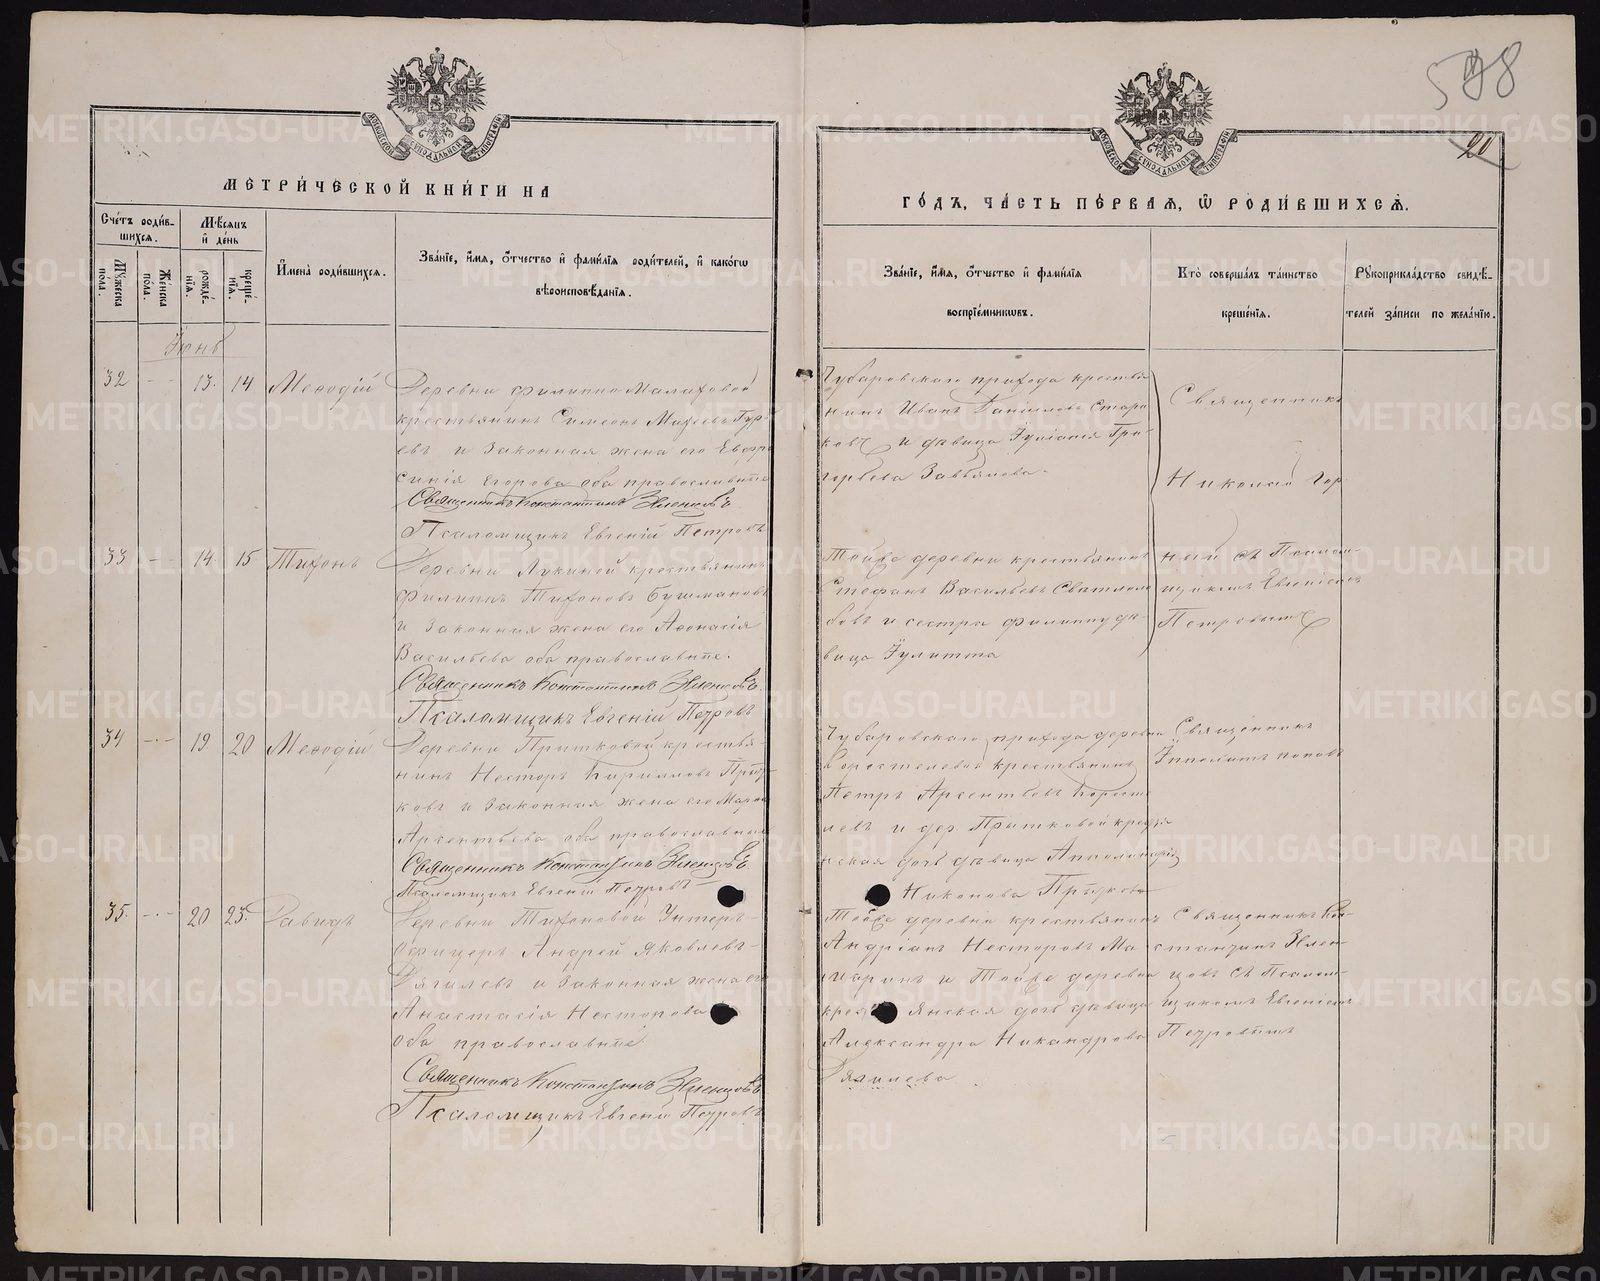 598
20
МЕТРИЧЕСКОЙ КНИГИ НА
ГОДЪ, ЧАСТЬ ПЕРВАЯ, Ѿ РОДИВШИХСЯ.
Счетъ родив-
шихся.
Мужеска пола.
Женска пола.
Мѣсяцъ
и день
рожде-
нія.
креще-
нія.
Имена родившихся.
Званіе, имя, отчество и фамилія родителей, и какогѡ
вѣроисповѣданія.
Званіе, имя, отчество и фамилія
воспріемниковъ.
Кто совершалъ таинство
крещенія.
Рукоприкладство свидѣ-
телей записи по желанію.
Іюнь
32 - - 13. 14 Меѳодій
Деревни Филиппо-Малаховой
крестьянинъ Симеонъ Гур
евъ и законная жена его Евфро
синія Егорова оба православные
Священникъ Константинъ Земляницынъ
Псаломщикъ Евгеній Петровъ
Чубаровскаго прихода крестья
нинъ Иванъ Даніиловъ Стари
ковъ и дѣвица Іуліанія Гри-
горьева Завьялова.
Священникъ
Николай Гор
33 - - 14. 15 Тихонъ
Деревни Лукиной крестьянинъ
Филиппъ Тихоновъ Бушмановъ
и законная жена его Аѳонасія
Васильева оба православные.
Священникъ Константинъ
Псаломщикъ Евгеній Петровъ
Тойже деревни крестьянинъ
Стефанъ Васильевъ
и сестра Филиппу дѣ-
вица Іулитта
ный съ Псалом-
щикомъ Евгеніемъ
Петровымъ
34 - - 19 20 Меѳодій
Деревни Прытковой крестья-
нинъ Несторъ Кирилловъ Прыт
ковъ и законная жена его Марѳа
Арсентьева оба православные
Священникъ Константинъ
Псаломщикъ Евгеній Петровъ
Чубаровскаго прихода деревни
Коростелевой крестьянинъ
Петръ Арсентьевъ Корости
левъ и дер Прытковой кресть
янская дочь дѣвица Апполинарія
Никонова Прыткова
Священникъ
Ипполитъ Поповъ
35. - - 20 23. Давидъ
Деревни Тихоновой Унтеръ-
Офицеръ Андрей Яковлевъ
Дягилевъ и законная жена его
Анастасія Несторова
оба православные
Священникъ Константинъ
Псаломщикъ Евгеній Петровъ
Тойже деревни крестьянинъ
Андріанъ Несторовъ Ма
каринъ и Тойже деревни
крестьянская дочь дѣвица
Александра Никандрова
Дягилева
Священникъ Кон-
стантинъ
съ Псалом-
щикомъ Евгеніемъ
Петровымъ
METRIKI.GASO-URAL.RU